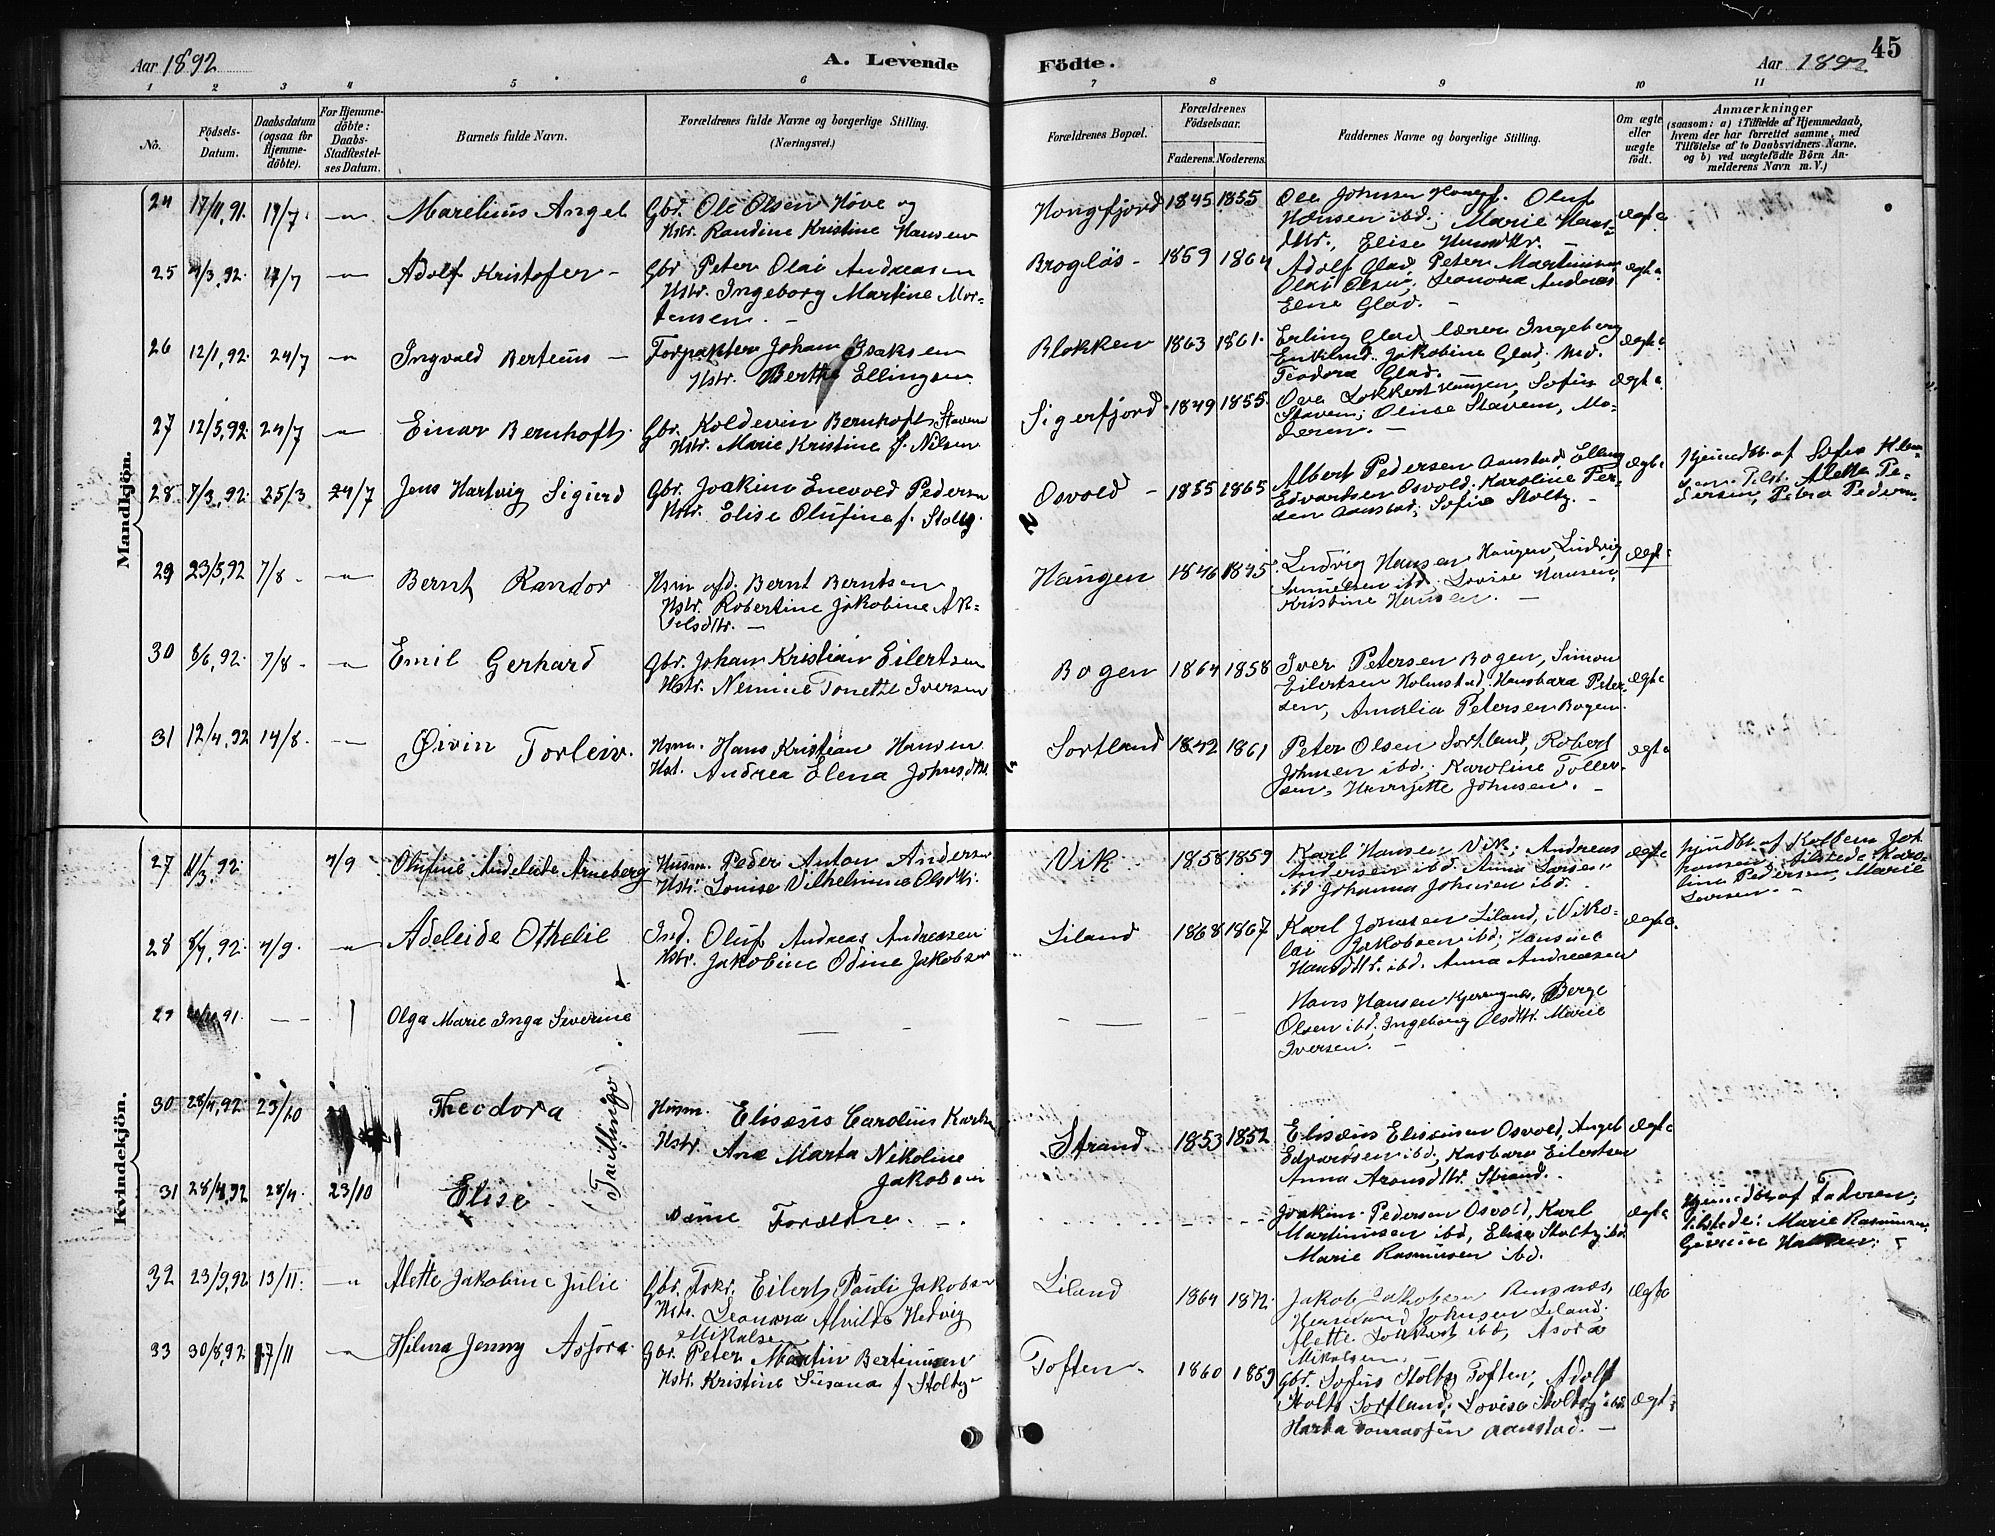 Aar 1892
A. Levende Födte.
Aar 1892
45
1 2 3 4 5 6 7 8 9 10 11
No.
Födsels-Datum.
Daabsdatum (ogsaa for Hjemme-döbte).
For Hjemme-döbte: Daabs-Stadfestel-ses Datum.
Barnets fulde Navn.
Forældrenes fulde Navne og borgerlige Stilling. (Næringsvei.)
Forældrenes Bopæl.
Forældrenes Födselsaar.
Faderens. Moderens.
Faddernes Navne og borgerlige Stilling.
Om ægte eller uægte födt.
Anmærkninger
(saasom: a) i Tilfælde af Hjemmedaab, hvem der har forrettet samme, med Tilföielse af to Daabsvidners Navne, og b) ved uægtefödte Börn An-melderens Navn m. V.)
Mandkjön.
24 17/11,91. 17/7. -"- Marelius Angel Gbr. Ole Olsen Hove og Hongfjord 1845 1855 Ole Johnsen Hongf. Oluf ægte
Hstr. Randine Kristine Hansen Hansen ibd; Marie Hans-
dtr., Elise Hansdtr.
25 /3,92. 17/7 -"- Adolf Kristofer - Gbr Peter Olai Andreasen Brogløs - 1859 1864 Adolf Glad, Peter Martinsen ægte
Hstr. Ingeborg Martine Mor- Olai Olsen, Leonora Andreas
tensen. - Elne Glad. -
26 12/1,92. 24/7 -"- Ingvald Berteus - Forpakter Johan Isaksen Blokken 1863 1861. Erling Glad lærer Ingeborg ægte
Hstr. Berthe Ellingsen Jakobine Glad,
Teodora Glad.
27 12/5,92. 24/7 -"- Einar Bernhoft. Gbr. Koldevin Bernhoft Stavem Sigerfjord 1849 1855. Ove Lokkert Sofus ægte
Hstr. Marie Kristine f. Nilsen Stavem; Oluise Stavem, Mo-
deren. -
28. 7/3,92. 25/3 24/7 Jens Hartvig Sigurd Gbr. Joakim Enevold Pedersen Osvold - 1855 1865 Albert Pedersen Aanstad, Elling ægte Hjemdbt. af Sofus Klem-
Hstr. Elise Olufine f. Stolty. Edvartsen Osvold. Karoline Pe- Tilst. Alette Pe-
Aanstad; Sofie Stolty. - dersen, Petra Pedersen
29 23/5,92 7/8 - -"- Bernt Randor Hsm afd. Bernt Berntsen Haugen 1846 1845 Ludvig Hansen Haugen, Ludvig ægte
Hstr. Robertine Jakobine Ak- Samuelsen ibd. Lovise Hansen,
selsdtr. - Kristine Hansen. -
30 8/6,92. 7/8 - -"- Emil Gerhard Gbr. Johan Kristian Eilertsen Bogen 1864 1858 Iver Petersen Bogen, Simon ægte
Hstr. Nemine Tonette Iversen Eilertsen Holmstad; Hansbara Peter-
sen, Amalia Petersen Bogen.
31 12/4,92 14/8. -"- Øivin Torleiv. Hsm. Hans Kristian Hansen Sortland 1842 1861 Peter Olsen Sortland, Robert ægte
Hst. Andrea Elena Johnsdtr. Johnsen ibd; Karoline Tollev-
sen, Henrijette Johnsen. -
Kvindekjön.
27 11/3,92 4/9 Olufine Andeleide Arneberg Husm. Peder Anton Andersen Vik. 1858 1859 Karl Hansen Vik; Andreas ægte hjmdbt. af Kolbein Joh
Hstr. Louise Vilhelmine Olsdtr. Andersen ibd. Anna Larsen hansen, Tilstede: Karo-
ibd Johanna Johnsen ibd. line Pedersen, Marie
Iversen. -
28 8/7,92. 4/9. -"- Adeleide Othelie Ind. Oluf Andreas Andreasen Liland 1868 1867 Karl Jonasen Liland, Niko- ægte.
Hstr. Jakobine Odine Jakobsen lai Jakobsen ibd, Hansine
Hansdtr. ibd. Anna Andreasen
29 91. - - Olga Marie Inga Severine - - - - Hans Hansen Kjerringnes, Berge
Olsen ibd, Ingeborg Olsdtr. Marie
Iversen. -
30 28/4,92. 23/10 Theodora (Tvillinge) Husm. Elisæus Carolius Karls Strand 1853 1852 Elisæus Elisæusen Osvold, Angel ægte
Hstr. Ane Marta Nikoline Edvardsen ibd, Kasbara Eilertsen
Jakobsen Anna Aronsdtr. Strand.
31 28/4,92 28/4. 23/10 Elise. Same Forældre. - - - - Joakim Pedersen Osvold, Karl ægte Hjemdbt. af Faderen,
Martinusen ibd, Elise Stolty ibd Tilstede: Marie Rasmussen
Marie Rasmusen ibd.
32 23/9,92 13/11. -"- Alette Jakobine Julie Gbr. Fskr. Eilert Pauli Jakobsen Liland 1864 1872. Jakob Jakobsen Ramnæs, ægte
Hstr. Leonora Alvilde Hedvig Johnsen Liland.
Mikalsen Alette Lokkert ibd, Asora
Mikalsen.
33 30/8,92 17/11 -"- Hilma Jenny Asjora Gbr. Peter Martin Bertinusen Toften - 1860 1859 Gbr. Sofus Stolty Toften, Adolf ægte
Hstr. Kristine Susana f Stolty Stolty Sortland; Lovisa Stolty ibd
Marta Tomassen Aanstad. -